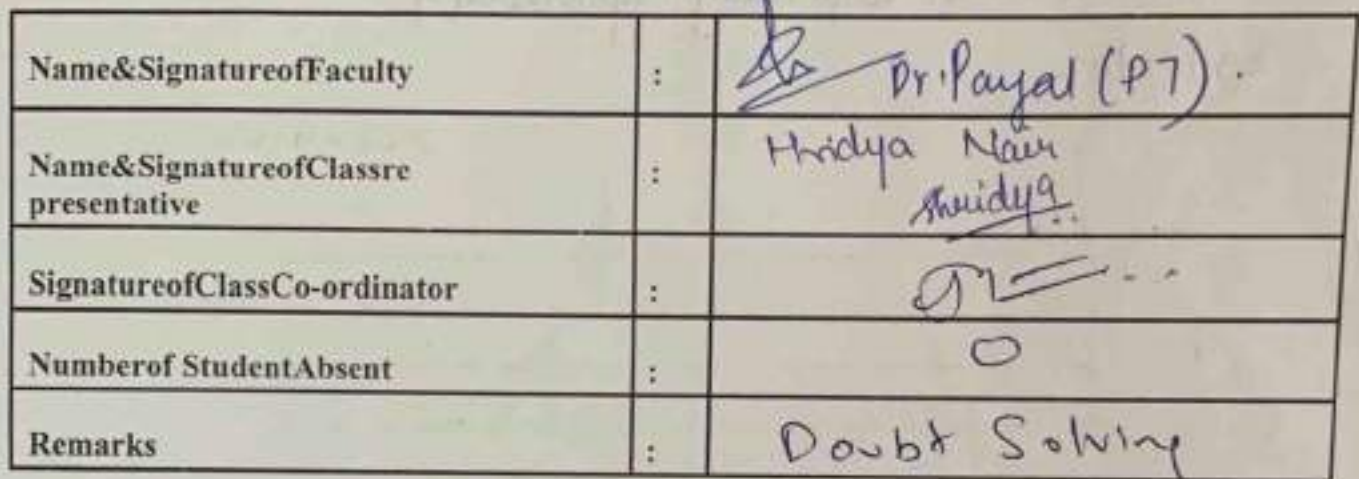 Name&SignatureofFaculty : Dr. Payal (PT).
Name&SignatureofClassre : Hridya Nair
presentative
Hridya
SignatureofClassCo-ordinator :
NumberofStudentAbsent : 0
Remarks : Doubt Solving